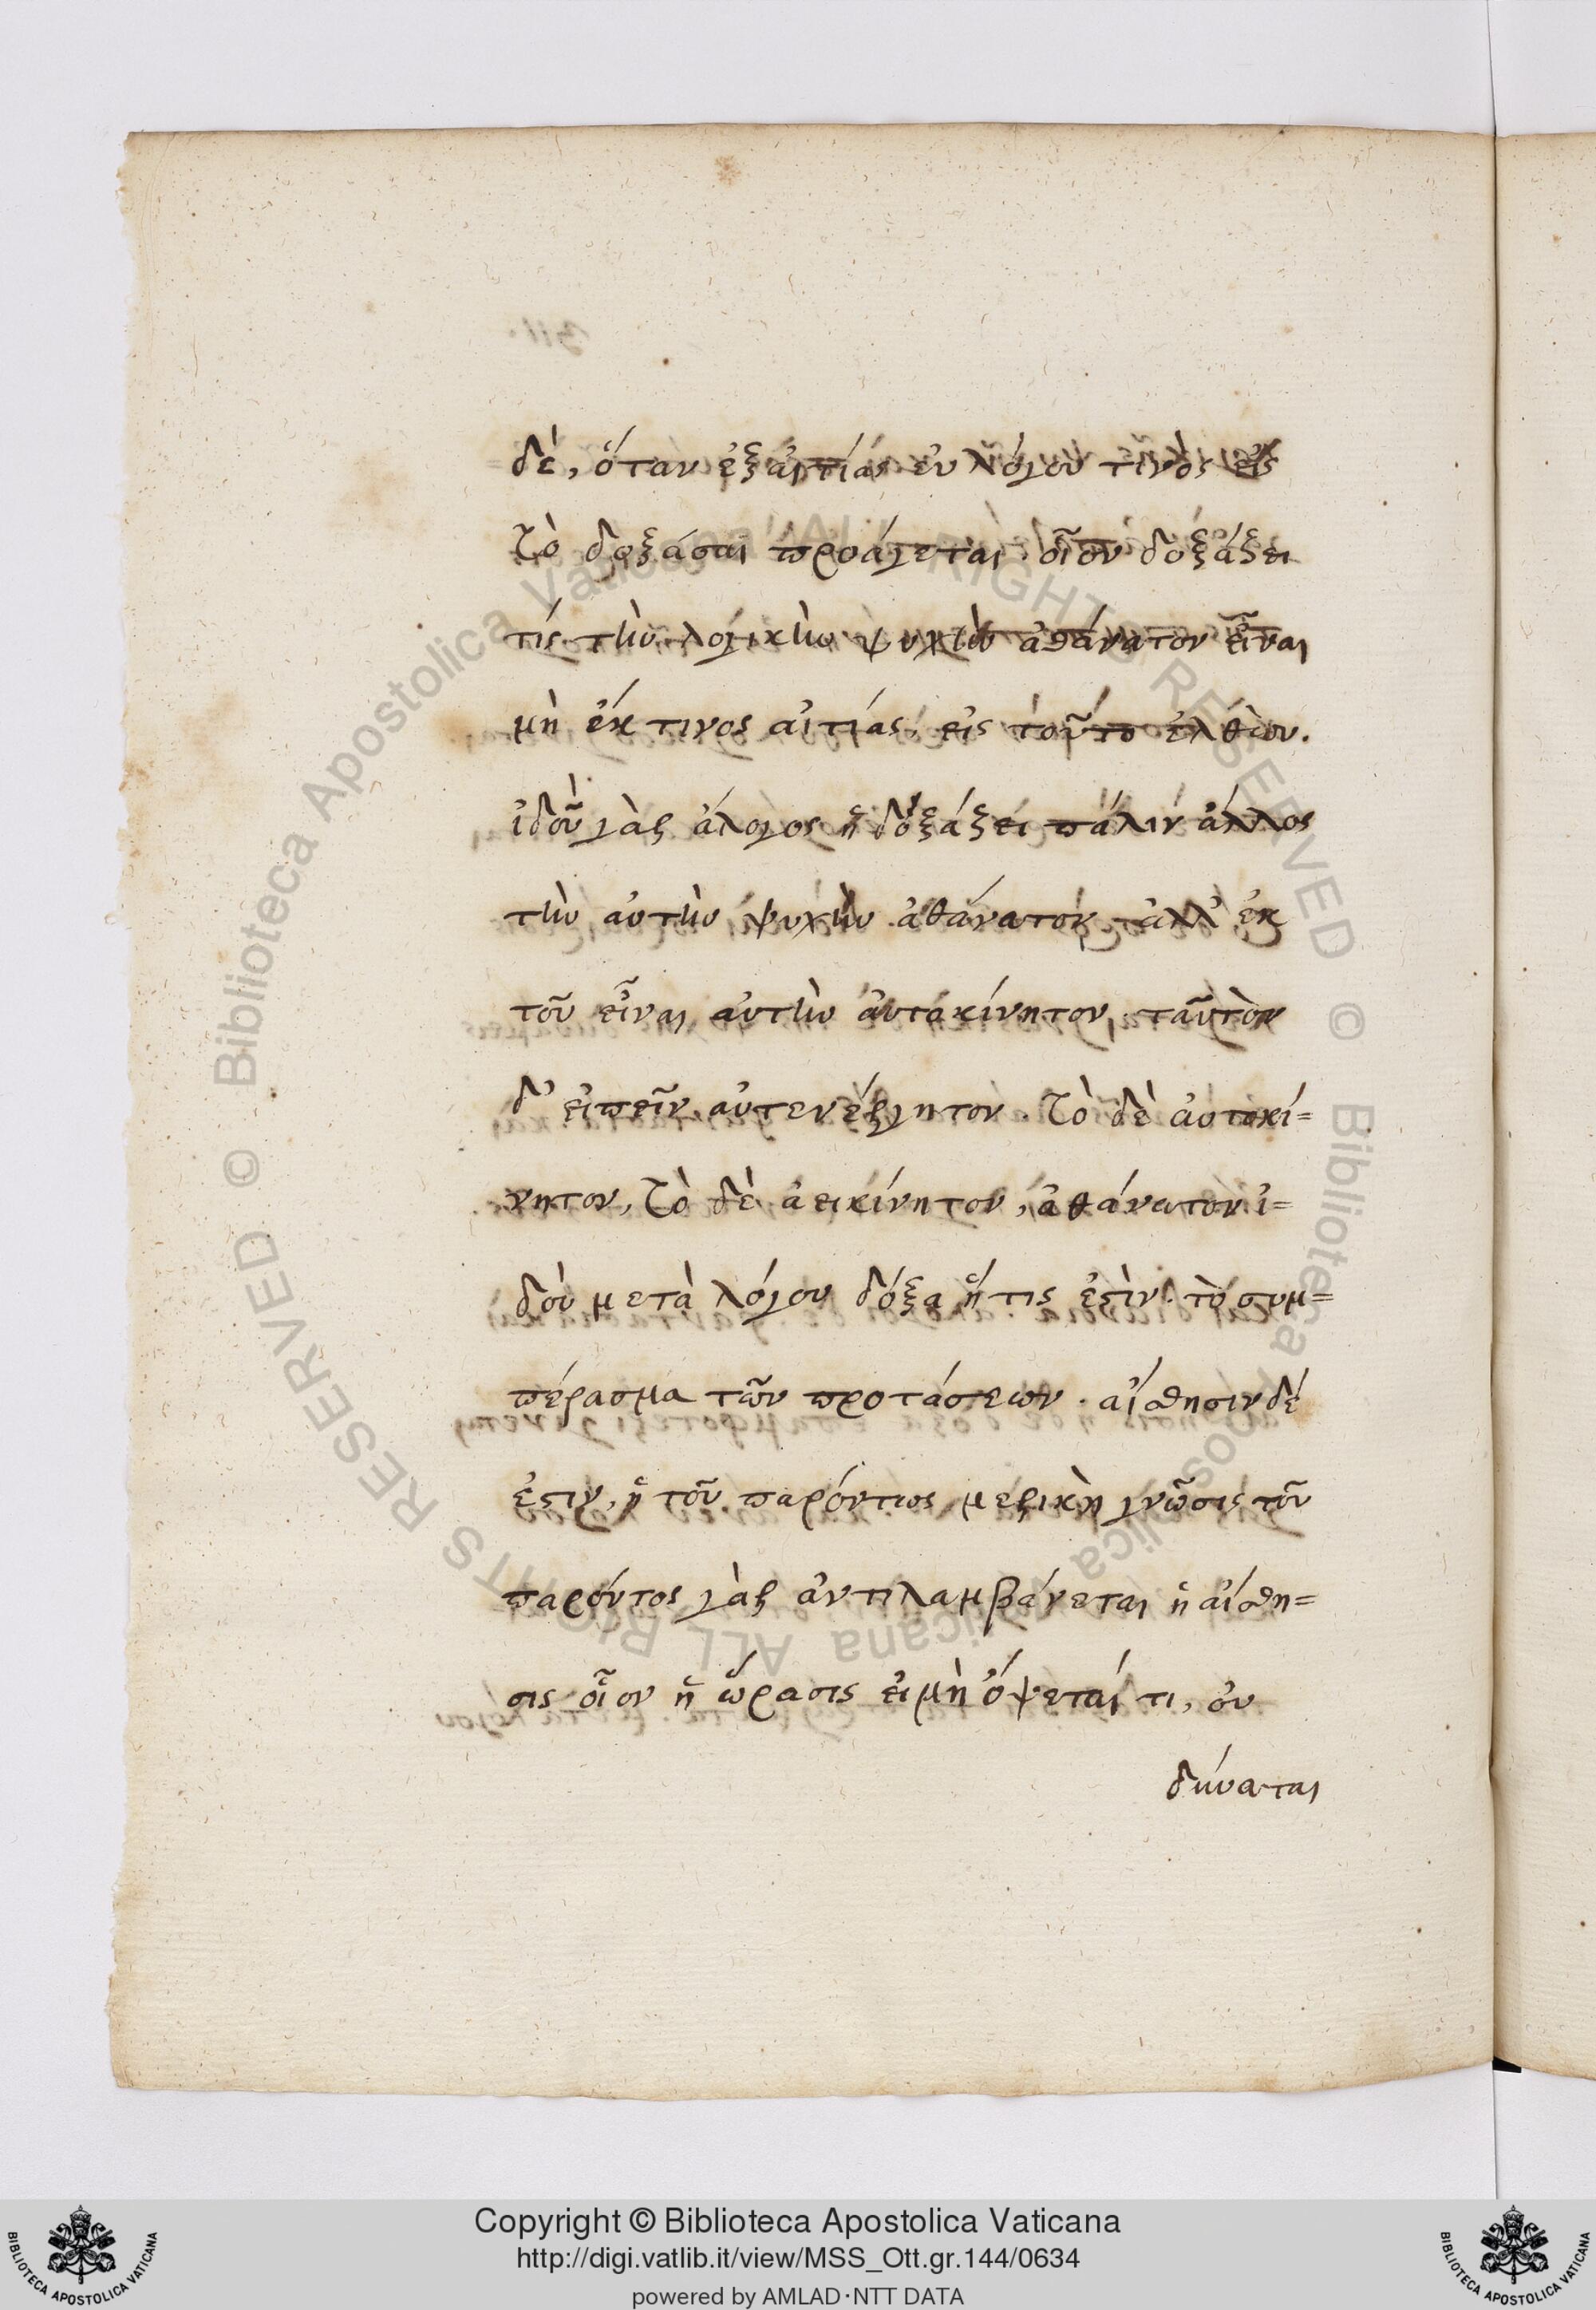 δὲ, ὅταν ἐξ αἰτίας εὐλόγου τινὸς εἰς
τὸ δοξάσαι προάγεται. οἷον δοξάζει
τίς τὴν λογικὴν ψυχὴν ἀθάνατον εἶναι
μὴ ἐκ τινος αἰτίας, εἰς τοῦτο ἐλθὼν.
ἰδοῦ γὰρ ἄλογος ἢ δοξάζει πάλιν ἄλλος
τὴν αὐτὴν ψυχὴν ἀθάνατον, ἀλλ' ἐκ
τοῦ εἶναι αὐτὴν αὐτοκίνητον, ταῦτὸν
δ' εἰπεῖν αὐτενέργητον. τὸ δὲ αὐτοκί=
νητον, τὸ δὲ ἀεικίνητον, ἀθάνατον ἰ=
δοὺ μετὰ λόγου δόξα ἥτις ἐστὶν τὸ συμ=
πέρασμα τῶν προτάσεων. αἴσθησιν δέ
ἐστιν, ἡ τοῦ παρόντος μερικὴ γνῶσις τοῦ
παρόντος γὰρ ἀντιλαμβάνεται ἡ αἴσθη=
σις οἷον ἡ ὥρασις εἰ μὴ ὄψεταί τι, οὐ
δύναται
Copyright © Biblioteca Apostolica Vaticana
http://digi.vatlib.it/view/MSS_Ott.gr.144/0634
powered by AMLAD·NTT DATA
BIBLIOTECA APOSTOLICA VATICANA
BIBLIOTECA APOSTOLICA VATICANA
© Biblioteca Apostolica Vaticana ALL RIGHTS RESERVED
© Biblioteca Apostolica Vaticana ALL RIGHTS RESERVED